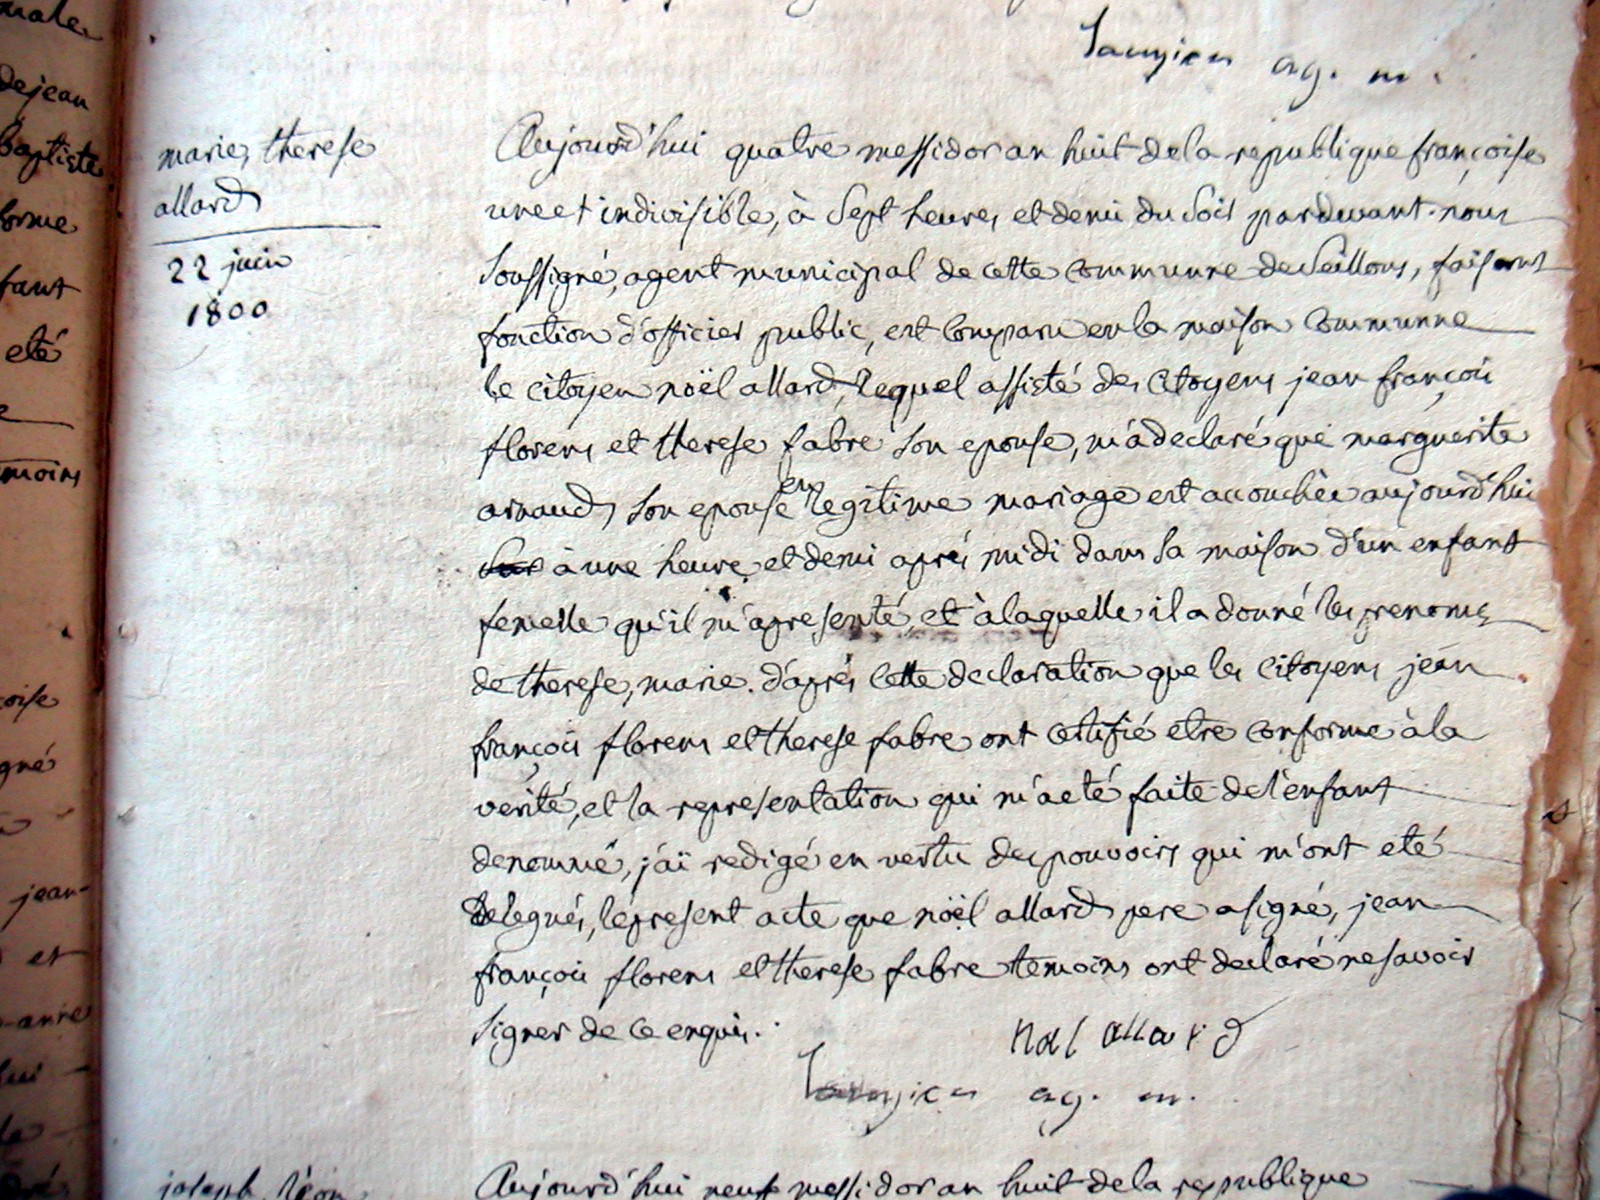 ag. m.
marie, therese
allard
22 juin
1800
Aujourd'hui quatre messidor an huit de la republique françoise
une et indivisible, à sept heures et demi du soir pardevant nous
soussigné, agent municipal de cette commune de Seillons, faisant
fonction d'officier public, est comparu en la maison commune
le citoyen noël allard, lequel assisté des citoyens jean françois
florens et therese fabre son epouse, m'a declaré que marguerite
arnaud son epouse en legitime mariage est accouchée aujourd'hui
à une heure et demi après midi dans sa maison d'un enfant
femelle qu'il m'a presenté, et à laquelle il a donné les prenoms
de therese, marie. d'après cette declaration que les citoyens jean
françois florens et therese fabre ont certifié etre conforme à la
verité, et la representation qui m'a eté faite de l'enfant
denommé, j'ai redigé en vertu des pouvoirs qui m'ont eté
delegués, le present acte que noël allard pere a signé, jean
françois florens et therese fabre temoins ont declaré ne savoir
signer de ce enquis.
noel allard
ag. m.
joseph, léon
Aujourd'hui neuf messidor an huit de la republique
male
de jean
baptiste
forme
fant
eté
moins
çoise
gné
jean-
et
-anne
hui